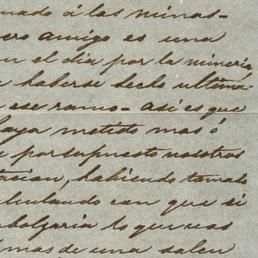 nado á las minas-
ero amigo es una
n el dia por la mineria
haberse hecho ultima-
ese ramo- asi es que
haya metido mas ó
por supuesto nosotros
habiendo tomado
culando con que si
lo que es
mas de una salen